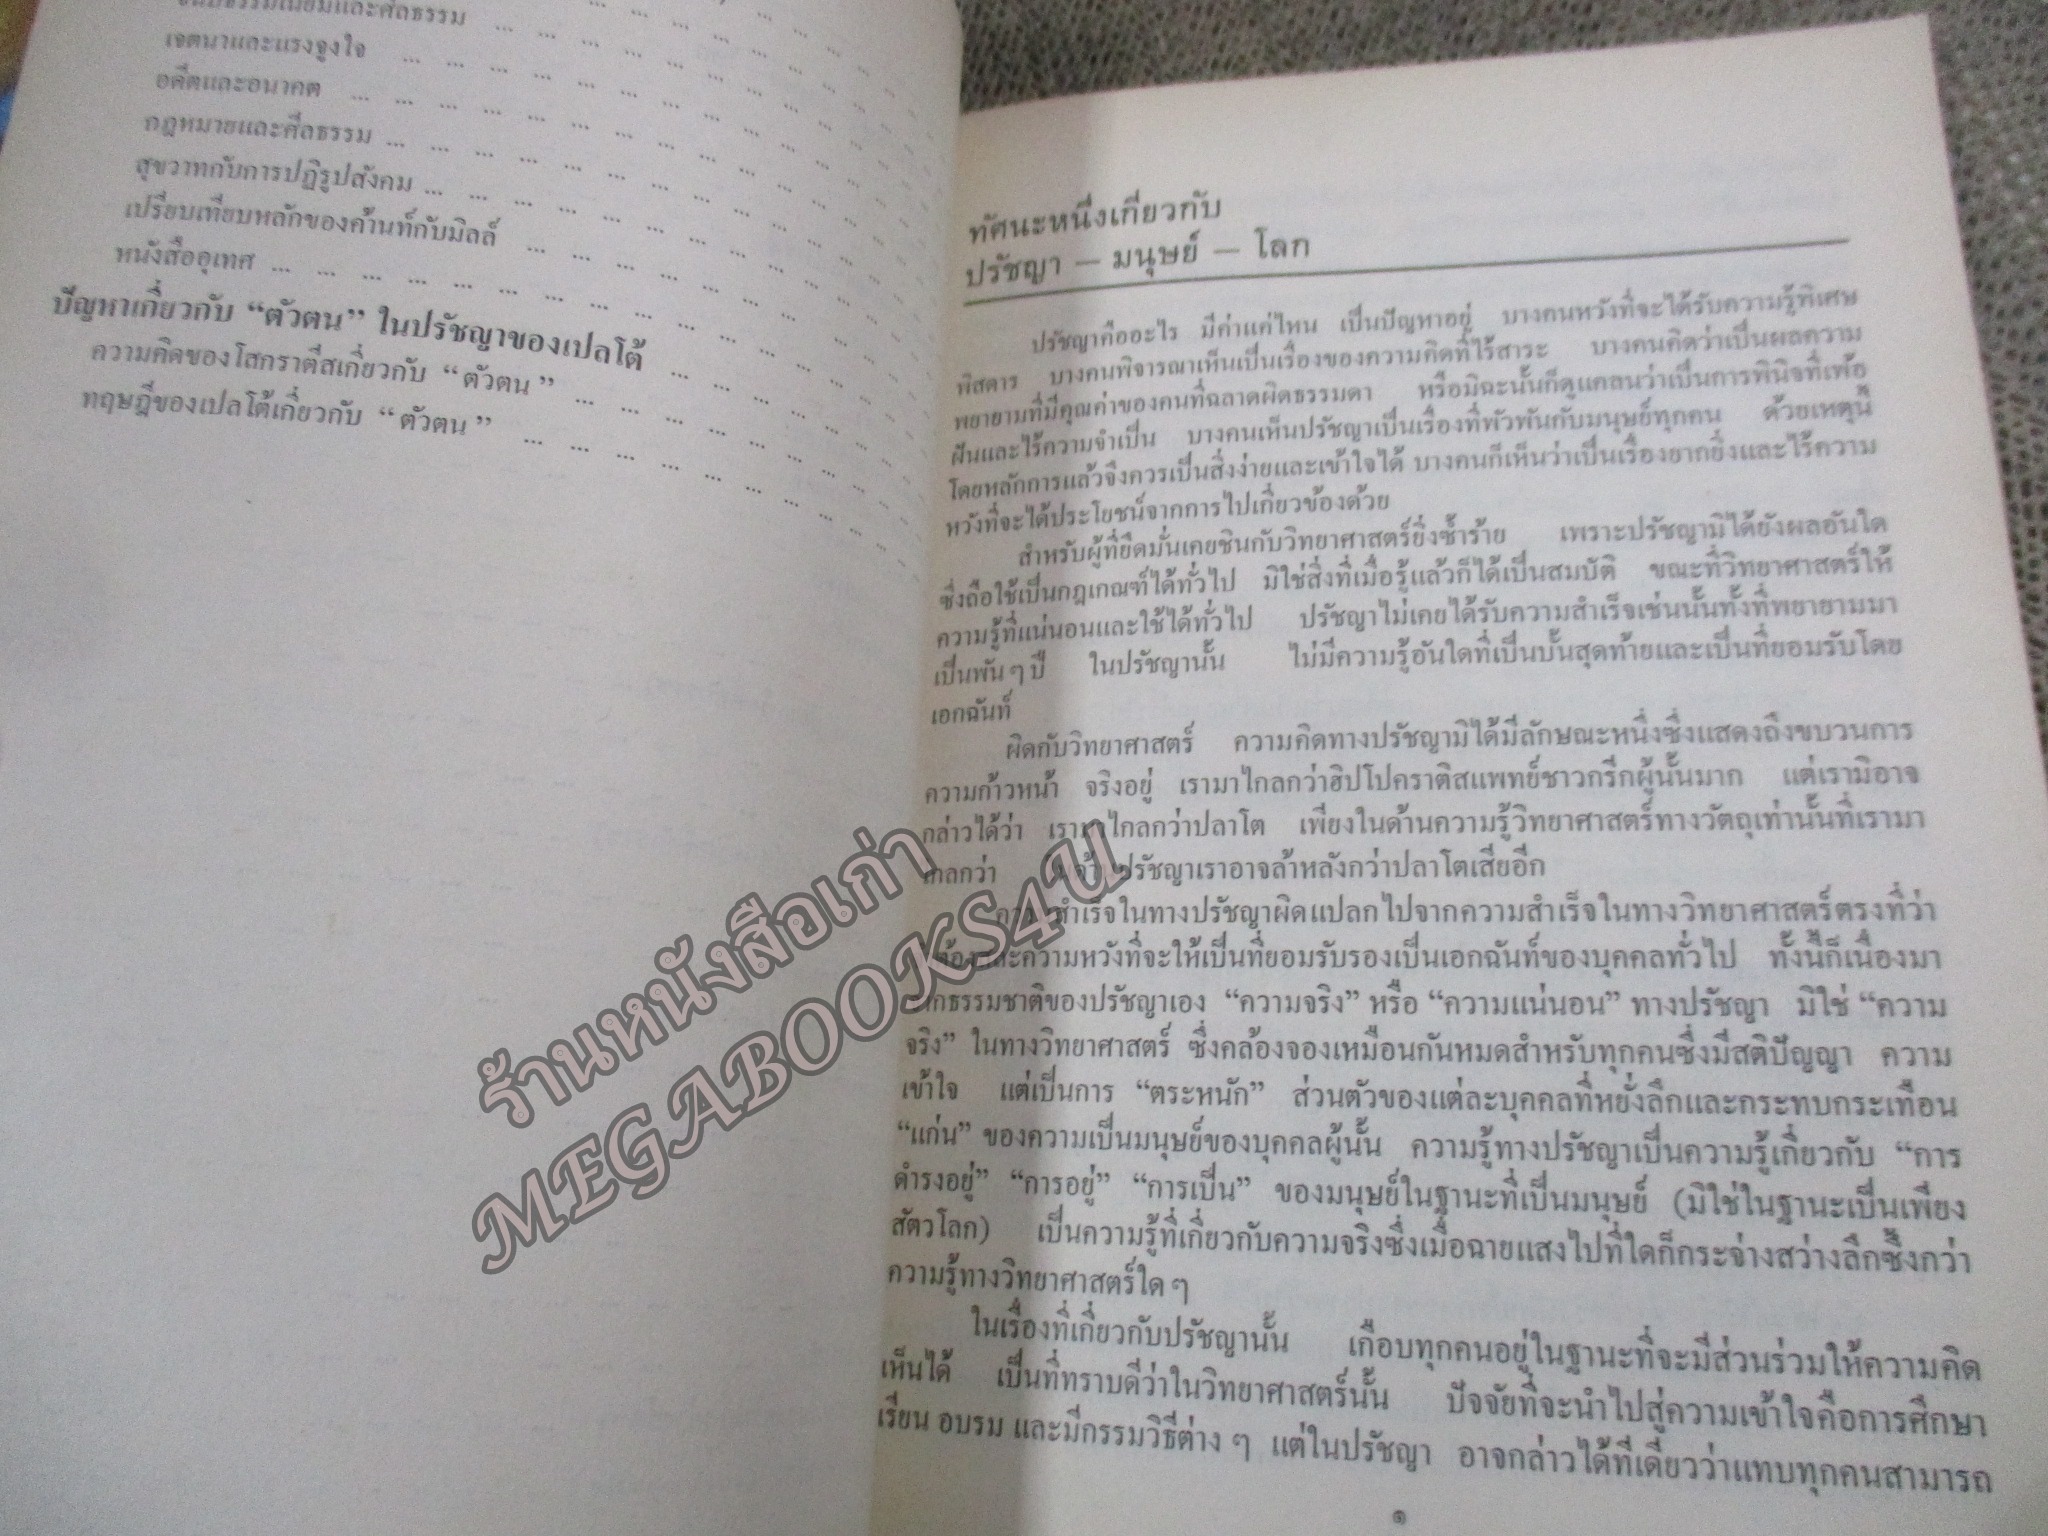 ขนบธรรมเนียมและศีลธรรม ... ... ... ... ... ... ...
เจตนาและแรงจูงใจ ... ... ... ... ... ... ...
อดีตและอนาคต ... ... ... ... ... ... ...
กฎหมายและศีลธรรม ... ... ... ... ... ... ...
สุขวาทกับการปฏิรูปสังคม ... ... ... ... ... ... ...
เปรียบเทียบหลักของค้านท์กับมิลล์ ... ... ... ... ... ...
หนังสืออุเทศ ... ... ... ... ... ... ... ...
ปัญหาเกี่ยวกับ “ตัวตน” ในปรัชญาของเปลโต้ ... ... ... ...
ความคิดของโสกราตีสเกี่ยวกับ “ตัวตน” ... ... ... ... ... ...
ทฤษฎีของเปลโต้เกี่ยวกับ “ตัวตน” ... ... ... ... ... ... ...
ทัศนะหนึ่งเกี่ยวกับ
ปรัชญา — มนุษย์ — โลก
ปรัชญาคืออะไร มีค่าแค่ไหน เป็นปัญหาอยู่ บางคนหวังที่จะได้รับความรู้พิเศษ
พิสดาร บางคนพิจารณาเห็นเป็นเรื่องของความคิดที่ไร้สาระ บางคนคิดว่าเป็นผลความ
พยายามที่มีคุณค่าของคนที่ฉลาดผิดธรรมดา หรือมิฉะนั้นก็ดูแคลนว่าเป็นการพินิจที่เพ้อ
ฝันและไร้ความจำเป็น บางคนเห็นปรัชญาเป็นเรื่องที่พัวพันกับมนุษย์ทุกคน ด้วยเหตุนี้
โดยหลักการแล้วจึงควรเป็นสิ่งง่ายและเข้าใจได้ บางคนก็เห็นว่าเป็นเรื่องยากยิ่งและไร้ความ
หวังที่จะได้ประโยชน์จากการไปเกี่ยวข้องด้วย
สำหรับผู้ที่ยึดมั่นเคยชินกับวิทยาศาสตร์ยิ่งซ้ำร้าย เพราะปรัชญามิได้ยังผลอันใด
ซึ่งถือใช้เป็นกฎเกณฑ์ได้ทั่วไป มิใช่สิ่งที่เมื่อรู้แล้วก็ได้เป็นสมบัติ ขณะที่วิทยาศาสตร์ให้
ความรู้ที่แน่นอนและใช้ได้ทั่วไป ปรัชญาไม่เคยได้รับความสำเร็จเช่นนั้นทั้งที่พยายามมา
เป็นพันๆปี ในปรัชญานั้น ไม่มีความรู้อันใดที่เป็นบั้นสุดท้ายและเป็นที่ยอมรับโดย
เอกฉันท์
ผิดกับวิทยาศาสตร์ ความคิดทางปรัชญามิได้มีลักษณะหนึ่งซึ่งแสดงถึงขบวนการ
ความก้าวหน้า จริงอยู่ เรามาไกลกว่าฮิปโปคราติสแพทย์ชาวกรีกผู้นั้นมาก แต่เรามิอาจ
กล่าวได้ว่า เรามาไกลกว่าปลาโต เพียงในด้านความรู้วิทยาศาสตร์ทางวัตถุเท่านั้นที่เรามา
ไกลกว่า ในด้านปรัชญาเราอาจล้าหลังกว่าปลาโตเสียอีก
ความสำเร็จในทางปรัชญาผิดแปลกไปจากความสำเร็จในทางวิทยาศาสตร์ตรงที่ว่า
ต้องสละความหวังที่จะให้เป็นที่ยอมรับรองเป็นเอกฉันท์ของบุคคลทั่วไป ทั้งนี้ก็เนื่องมา
จากธรรมชาติของปรัชญาเอง “ความจริง” หรือ “ความแน่นอน” ทางปรัชญา มิใช่ “ความ
จริง” ในทางวิทยาศาสตร์ ซึ่งคล้องจองเหมือนกันหมดสำหรับทุกคนซึ่งมีสติปัญญา ความ
เข้าใจ แต่เป็นการ “ตระหนัก” ส่วนตัวของแต่ละบุคคลที่หยั่งลึกและกระทบกระเทือน
“แก่น” ของความเป็นมนุษย์ของบุคคลผู้นั้น ความรู้ทางปรัชญาเป็นความรู้เกี่ยวกับ “การ
ดำรงอยู่” “การอยู่” “การเป็น” ของมนุษย์ในฐานะที่เป็นมนุษย์ (มิใช่ในฐานะเป็นเพียง
สัตวโลก) เป็นความรู้ที่เกี่ยวกับความจริงซึ่งเมื่อฉายแสงไปที่ใดก็กระจ่างสว่างลึกซึ้งกว่า
ความรู้ทางวิทยาศาสตร์ใดๆ
ในเรื่องที่เกี่ยวกับปรัชญานั้น เกือบทุกคนอยู่ในฐานะที่จะมีส่วนร่วมให้ความคิด
เห็นได้ เป็นที่ทราบดีว่าในวิทยาศาสตร์นั้น ปัจจัยที่จะนำไปสู่ความเข้าใจคือการศึกษา
เรียน อบรม และมีกรรมวิธีต่าง ๆ แต่ในปรัชญา อาจกล่าวได้ทีเดียวว่าแทบทุกคนสามารถ
๑
ร้านหนังสือเก่า
MEGABOOKS4U